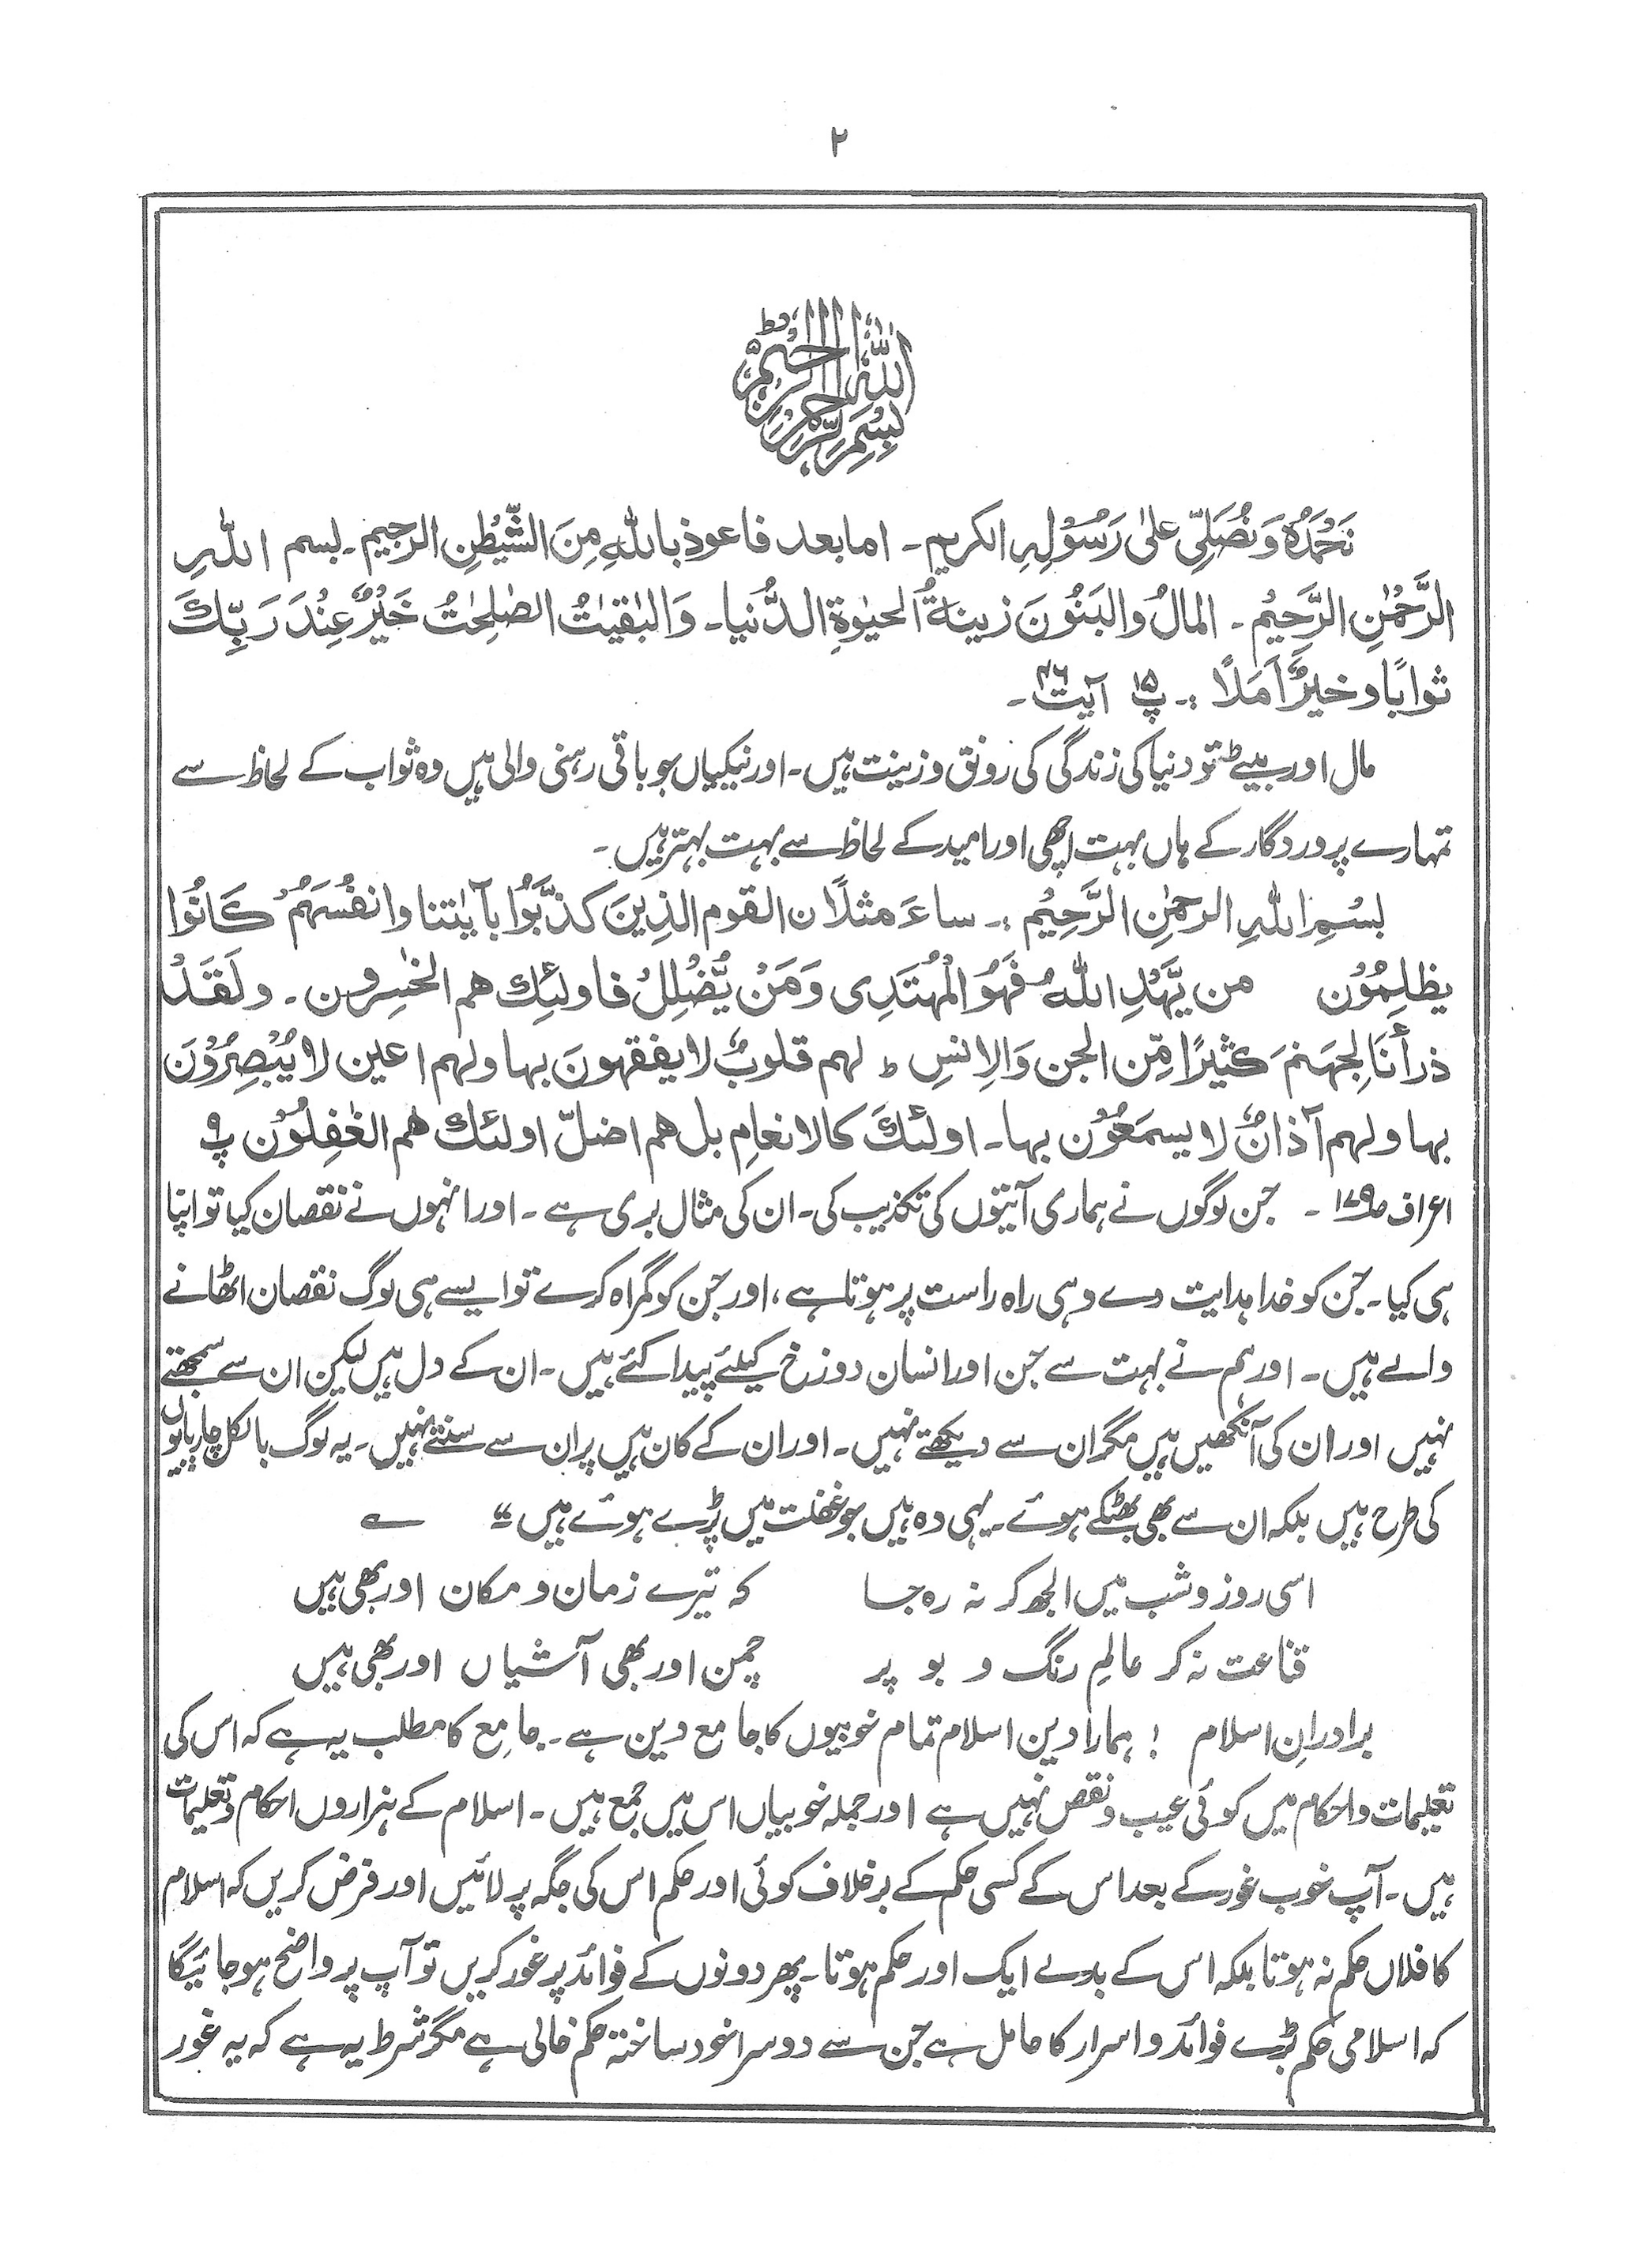 ۲
بِسْمِ اللّٰهِ الرَّحْمٰنِ الرَّحِيْمِ ط
نَحْمَدُہٗ وَنُصَلِّیْ عَلیٰ رَسُوْلِہِ الکریم۔ اما بعد فاعوذ باللّٰہِ مِنَ الشَّیْطٰنِ الرجیم۔ بسم اللّٰہِ
الرَّحْمٰنِ الرَّحِیْمِ۔ المالُ والبَنُونَ زینۃُ الحیٰوۃِ الدُّنیا۔ وَالبٰقیٰتُ الصّٰلِحٰتُ خَیْرٌ عِنْدَ رَبِّكَ
ثوابًا وخیرٌ اَمَلًا :۔ پ ۱۵ آیت ۴۶۔
مال اور بیٹے تو دنیا کی زندگی کی رونق و زینت ہیں۔ اور نیکیاں جو باقی رہنی والی ہیں وہ ثواب کے لحاظ سے
تمہارے پروردگار کے ہاں بہت اچھی اور امید کے لحاظ سے بہت بہتر ہیں۔
بِسْمِ اللّٰہِ الرحمٰنِ الرَّحِیْمِ :۔ ساءَ مثلًا ن القوم الذِینَ کذّبُوا بآیٰتنا وانفُسَهُمْ کَانُوا
یظلِمُوْن من یَّهْدِ اللّٰہُ فَهُوَ الْمُهْتَدِی وَمَنْ یُّضْلِلْ فاولٰئِك هم الخٰسِرون۔ ولَقَدْ
ذرأنَا لِجهَنمَ کثیرًا مِّن الجن وَالِانسِ ؕ لهم قلوبٌ لا یفقهونَ بها ولهم اعین لا یُبْصِرُوْنَ
بها ولهم آذانٌ لا یسمَعُوْن بها۔ اولٰئكَ کالانعامِ بل هم اضلّ اولئك هم الغٰفِلُوْن پ ۹
اعراف ۱۷۹۔ جن لوگوں نے ہماری آیتوں کی تکذیب کی۔ ان کی مثال بری ہے۔ اور انہوں نے نقصان کیا تو اپنا
ہی کیا۔ جن کو خدا ہدایت دے وہی راہ راست پر ہوتا ہے، اور جن کو گمراہ کرے تو ایسے ہی لوگ نقصان اٹھانے
والے ہیں۔ اور ہم نے بہت سے جن اور انسان دوزخ کیلئے پیدا کئے ہیں۔ ان کے دل ہیں لیکن ان سے سمجھتے
نہیں اور ان کی آنکھیں ہیں مگر ان سے دیکھتے نہیں۔ اور ان کے کان ہیں پر ان سے سنتے نہیں۔ یہ لوگ بالکل چارپایوں
کی طرح ہیں بلکہ ان سے بھی بھٹکے ہوئے۔ یہی وہ ہیں جو غفلت میں پڑے ہوئے ہیں ؎
اسی روز و شب میں الجھ کر نہ رہ جا کہ تیرے زمان و مکان اور بھی ہیں
قناعت نہ کر عالمِ رنگ و بو پر چمن اور بھی آشیاں اور بھی ہیں
برادرانِ اسلام ! ہمارا دین اسلام تمام خوبیوں کا جامع دین ہے۔ جامع کا مطلب یہ ہے کہ اس کی
تعلیمات و احکام میں کوئی عیب و نقص نہیں ہے اور جملہ خوبیاں اس میں جمع ہیں۔ اسلام کے ہزاروں احکام و تعلیمات
ہیں۔ آپ خوب غور کے بعد اس کے کسی حکم کے برخلاف کوئی اور حکم اس کی جگہ پر لائیں اور فرض کریں کہ اسلام
کا فلاں حکم نہ ہوتا بلکہ اس کے بدلے ایک اور حکم ہوتا۔ پھر دونوں کے فوائد پر غور کریں تو آپ پر واضح ہو جائیگا
کہ اسلامی حکم بڑے فوائد و اسرار کا حامل ہے جن سے دوسرا خود ساختہ حکم خالی ہے مگر شرط یہ ہے کہ یہ غور